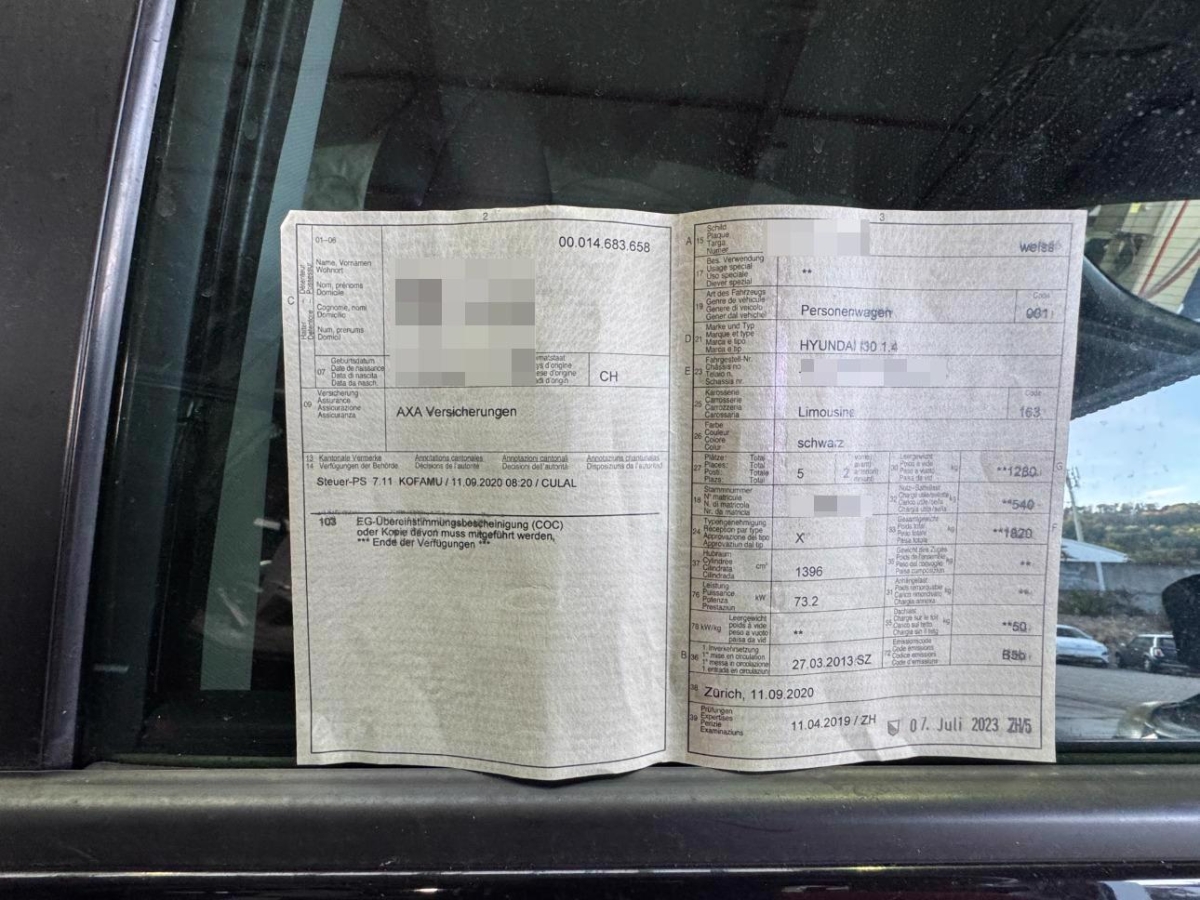 2
01–06
00.014.683.658
Name, Vornamen
Wohnort
Nom, prénoms
Domicile
Cognome, nomi
Domicilio
Num, prenums
Domicil
C
07
Geburtsdatum
Date de naissance
Data di nascita
Data da nasch.
CH
09
Versicherung
Assurance
Assicurazione
Assicuranza
AXA Versicherungen
13 Kantonale Vermerke Annotations cantonales Annotazioni cantonali Annotaziuns chantunalas
14 Verfügungen der Behörde Décisions de l'autorité Decisioni dell'autorità Disposiziuns da l'autoritad
Steuer-PS 7.11 KOFAMU / 11.09.2020 08:20 / CULAL
103 EG-Übereinstimmungsbescheinigung (COC)
oder Kopie davon muss mitgeführt werden,
*** Ende der Verfügungen ***
3
A 15
Schild
Plaque
Targa
Numer
weiss
17
Bes. Verwendung
Usage spécial
Uso speciale
Diever spezial
**
19
Art des Fahrzeugs
Genre de véhicule
Genere di veicolo
Gener dal vehichel
Personenwagen
Code
001
D 21
Marke und Typ
Marque et type
Marca e tipo
Marca e tip
HYUNDAI I30 1.4
E 23
Fahrgestell-Nr.
Châssis no
Telaio n.
Schassis nr.
25
Karosserie
Carrosserie
Carrozzeria
Carossaria
Limousine
Code
163
26
Farbe
Couleur
Colore
Colur
schwarz
27
Plätze: Total
Places: Total
Posti: Totale
Plazs: Total
5 2
30 Leergewicht
Poids à vide
Peso a vuoto
kg
**1280
G
18
Stammnummer
N° matricule
N. di matricola
Nr. da matricla
32
kg
**540
24
Typengenehmigung
Réception par type
Approvazione del tipo
Approvaziun dal tip
X
33 Gesamtgewicht
Poids total
Peso totale
kg
**1820
F
37
Hubraum
Cylindrée
Cilindrata
Cilindrada
cm³
1396
**
76
Leistung
Puissance
Potenza
Prestaziun
kW
73.2
31 Anhängelast
kg
**
78 kW/kg
Leergewicht
poids à vide
peso a vuoto
paisa da vid
**
55 Dachlast
kg
**50
B 36
1. Inverkehrsetzung
1re mise en circulation
1a messa in circolazione
1. entrada en circulaziun
27.03.2013 SZ
72 Emissionscode
Code émissions
Codice emissioni
Code d'emissiuns
B5b
38
Zürich, 11.09.2020
39
Prüfungen
Expertises
Perizie
Examinaziuns
11.04.2019 / ZH 07. Juli 2023 ZH/5